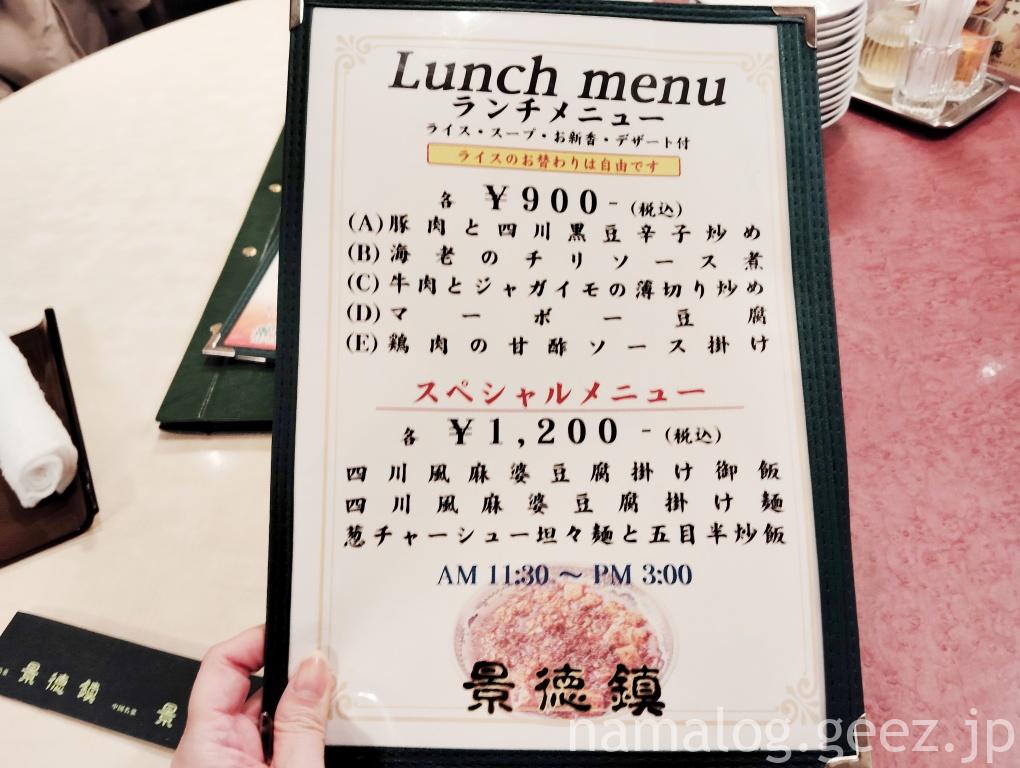 Lunch menu
ランチメニュー
ライス・スープ・お新香・デザート付
ライスのお替わりは自由です
各 ￥900-(税込)
(A)豚肉と四川黒豆辛子炒め
(B)海老のチリソース煮
(C)牛肉とジャガイモの薄切り炒め
(D)マーボー豆腐
(E)鶏肉の甘酢ソース掛け
スペシャルメニュー
各 ￥1,200-(税込)
四川風麻婆豆腐掛け御飯
四川風麻婆豆腐掛け麺
葱チャーシュー坦々麺と五目半炒飯
AM 11:30 ～ PM 3:00
景徳鎮
景徳鎮
中国名菜
景
namalog.geez.jp